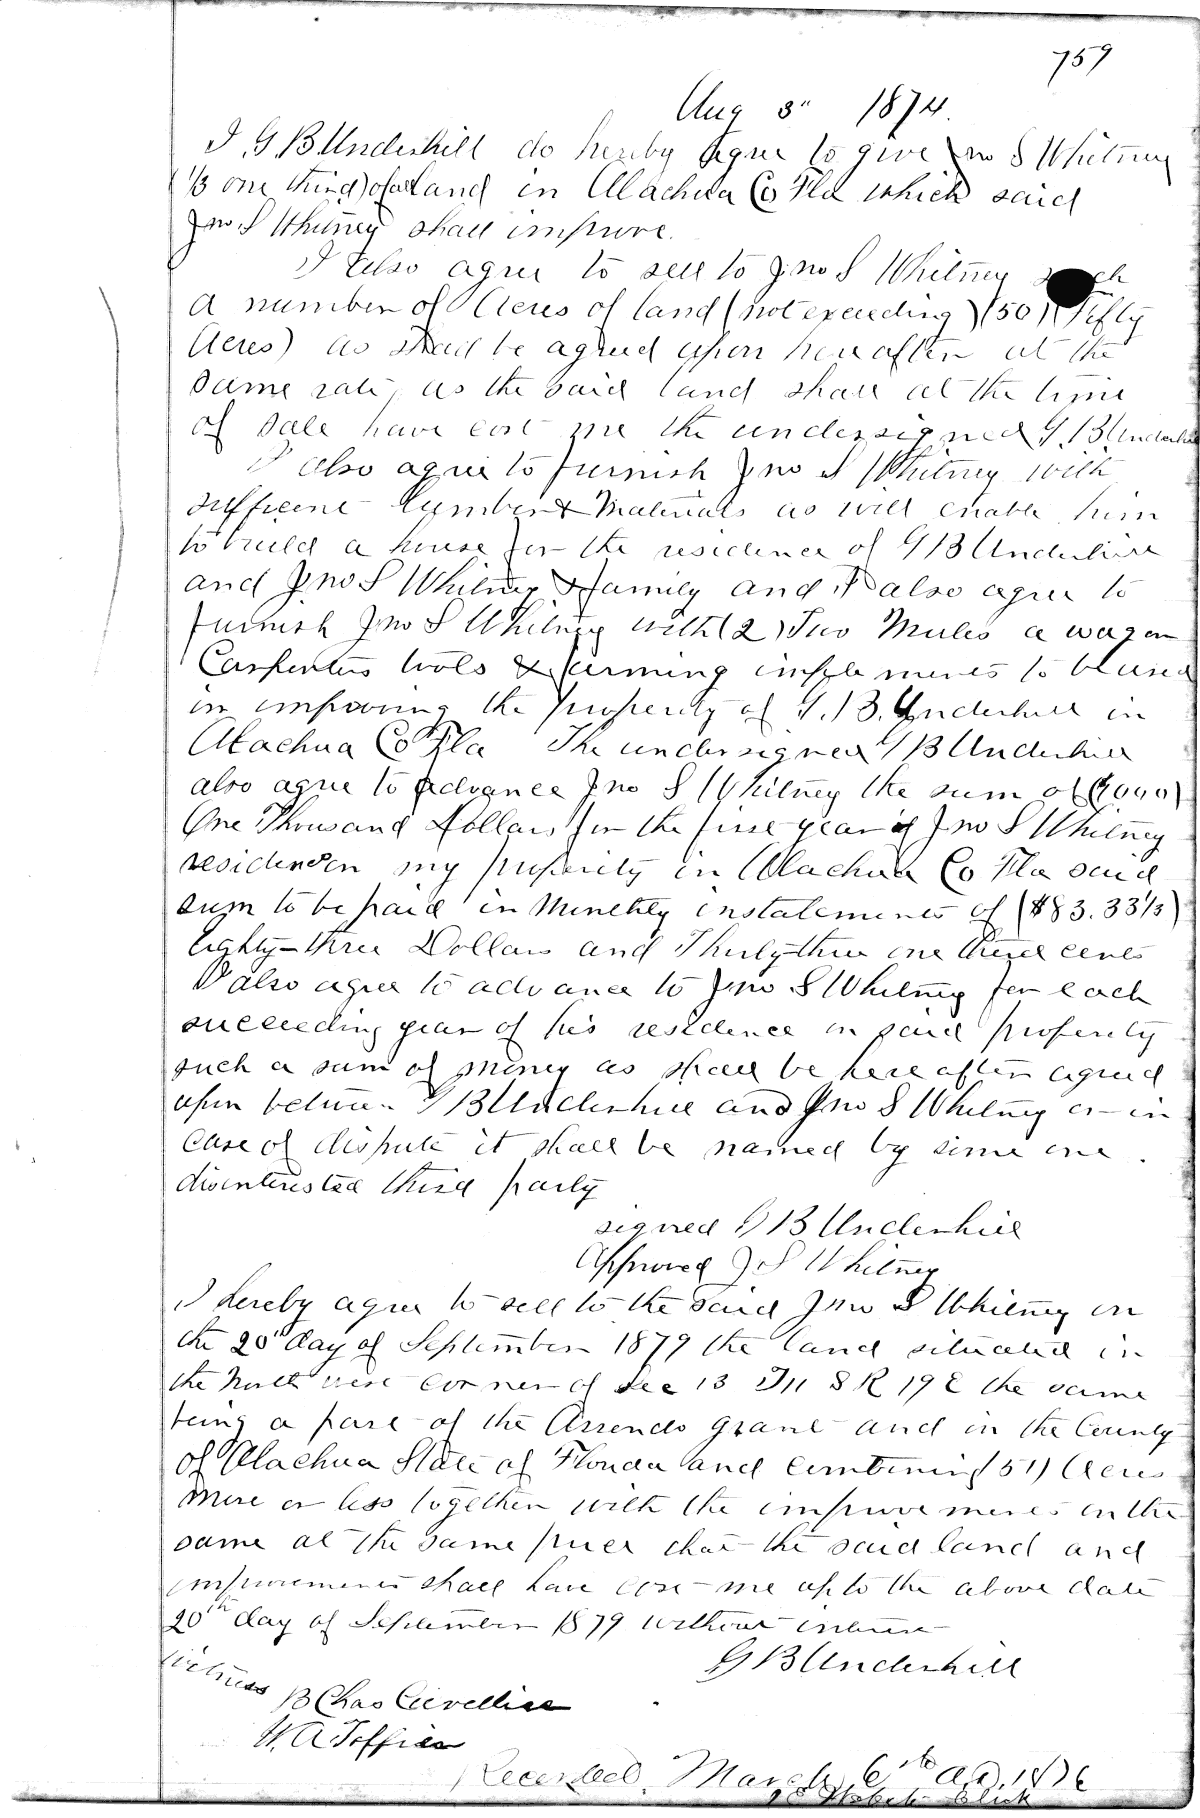 759
Aug 3" 1874.
I G. B Underhill do hereby agree to give Jno S Whitney
(1/3 one third) of all land in Alachua Co Fla which said
Jno S Whitney shall improve.
I also agree to sell to Jno S Whitney
a number of Acres of land (not exceeding) (50) (Fifty
Acres) as shall be agreed upon hereafter at the
same rate, as the said land shall at the time
of sale have cost me the undersigned G. B Underhill
I also agree to furnish Jno S Whitney with
sufficent lumber & Materials as will enable him
to build a house for the residence of G B Underhill
and Jno S Whitney & family and I also agree to
furnish Jno S Whitney with (2) Two Mules a wagon
Carpenters tools & farming implements to be used
in improving the property of G. B. Underhill in
Alachua Co Fla The undersigned G B Underhill
also agree to advance Jno S Whitney the sum of (1000)
One Thousand Dollars for the first year of Jno S Whitney
residence on my property in Alachua Co Fla said
sum to be paid in Monthly instalements of ($83.33 1/3)
Eighty-three Dollars and Thirty-three one third cents
I also agree to advance to Jno S Whitney for each
succeeding year of his residence on said property
such a sum of money as shall be hereafter agreed
upon between G B Underhill and Jno S Whitney or in
case of dispute it shall be named by some one
disinterested third party
signed G B Underhill
Approved J S Whitney
I hereby agree to sell to the said Jno S Whitney on
the 20" day of September 1879 the land situated in
the North west corner of Sec 13 T 11 S R 19 E the same
being a part of the Arrendo grant and in the County
of Alachua State of Florida and containing (51) Acres
more or less together with the improvements on the
same at the same price that the said land and
improvements shall have cost me up to the above date
20th day of September 1879 without interest
G B Underhill
Witness
B Chas
W. A
Recorded March 6th A.D. 1876
Clerk